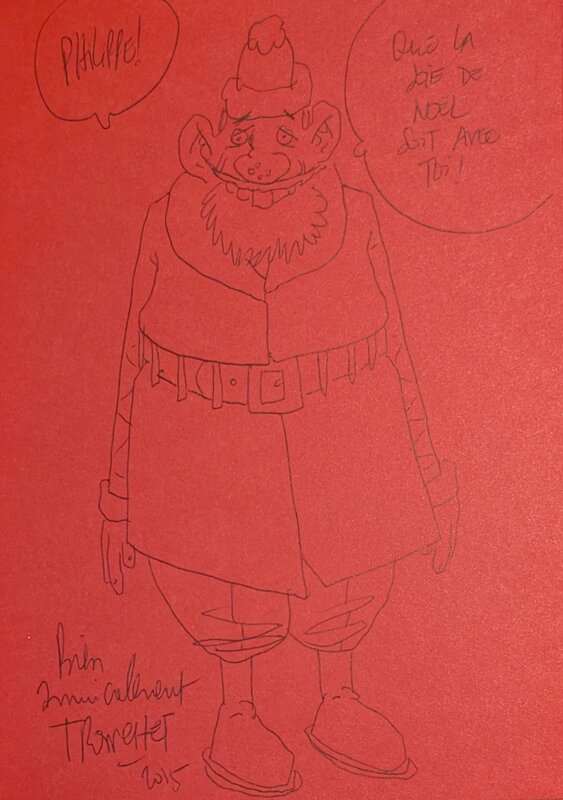 PHILIPPE!
QUE LA
JOIE DE
NOËL
SOIT AVEC
TOI!
Bien
amicalement
TRONCHET
2015